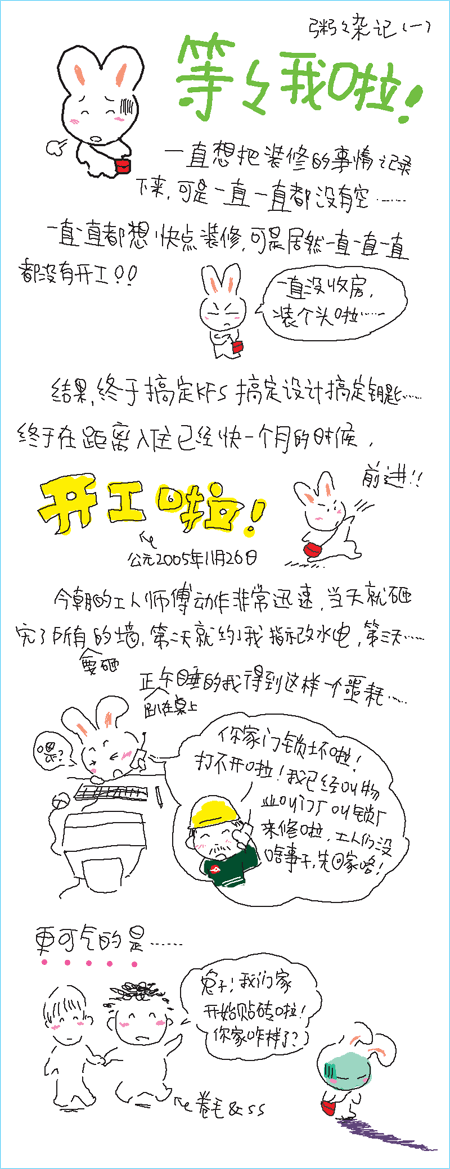 粥々杂记(一)
等々我啦!
一直想把装修的事情记录
下来,可是一直一直都没有空……
一直一直都想快点装修,可是居然一直一直一直
都没有开工!!
一直没收房,
装个头啦……
结果,终于搞定KFS 搞定设计搞定钥匙……
终于在距离入住已经快一个月的时候,
开工啦!
前进!!
公元2005年11月26日
今朝的工人师傅动作非常迅速,当天就砸
完了所有的墙,第二天就约我指示改水电,第三天……
要砸
正午睡的我得到这样一个噩耗……
趴在桌上
嗯?
你家门锁坏啦!
打不开啦!我已经叫物
业叫门厂叫锁厂
来修啦,工人们没
啥事干,先回家咯!
更可气的是……
兔子,我们家
开始贴砖啦!
你家咋样了?
卷毛&SS